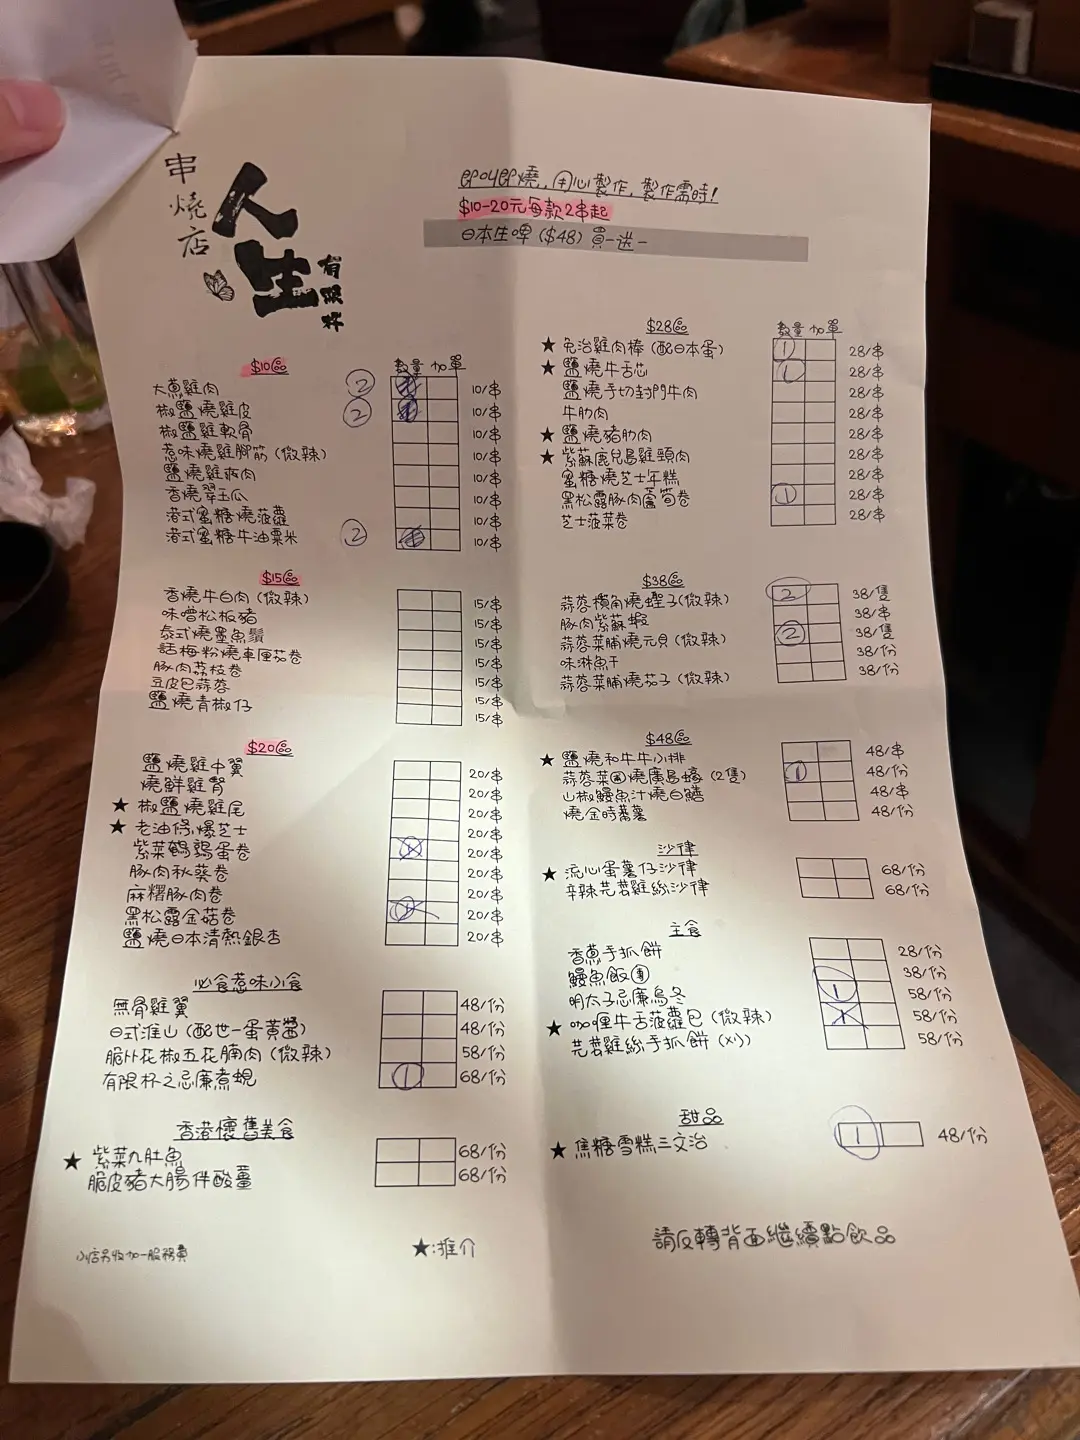 串燒店
人生
有限杯
即叫即燒,用心製作,製作需時!
$10-20元每款2串起
日本生啤($48)買一送一
$10區 數量 加單
大蔥雞肉 2 10/串
椒鹽燒雞皮 2 10/串
椒鹽雞軟骨 10/串
惹味燒雞腳筋(微辣) 10/串
鹽燒雞瘊肉 10/串
香燒翠玉瓜 10/串
港式蜜糖燒菠蘿 10/串
港式蜜糖牛油粟米 2 10/串
$15區
香燒牛白肉(微辣) 15/串
味噌松板豬 15/串
泰式燒墨魚鬚 15/串
話梅粉燒車厘茄卷 15/串
豚肉荔枝卷 15/串
豆皮包蒜蓉 15/串
鹽燒青椒仔 15/串
$20區
鹽燒雞中翼 20/串
燒鮮雞腎 20/串
★ 椒鹽燒雞尾 20/串
★ 老油條爆芝士 20/串
紫菜鵪鶉蛋卷 20/串
豚肉秋葵卷 20/串
麻糬豚肉卷 20/串
黑松露金菇卷 1 20/串
鹽燒日本清熱銀杏 20/串
必食惹味小食
無骨雞翼 48/份
日式淮山(配世一蛋黃醬) 48/份
脆卜花椒五花腩肉(微辣) 58/份
有限杯之忌廉煮蜆 1 68/份
香港懷舊美食
★ 紫菜九肚魚 68/份
脆皮豬大腸伴酸薑 68/份
小店另收加一服務費
★:推介
$28區 數量 加單
★ 免治雞肉棒(配日本蛋) 1 28/串
★ 鹽燒牛舌芯 1 28/串
鹽燒手切封門牛肉 28/串
牛肋肉 28/串
★ 鹽燒豬肋肉 28/串
★ 紫蘇鹿兒島雞頸肉 28/串
蜜糖燒芝士年糕 28/串
黑松露豚肉蘆筍卷 1 28/串
芝士菠菜卷 28/串
$38區
蒜蓉欖角燒蟶子(微辣) 2 38/隻
豚肉紫蘇蝦 38/串
蒜蓉菜脯燒元貝(微辣) 2 38/隻
味淋魚干 38/份
蒜蓉菜脯燒茄子(微辣) 38/份
$48區
★ 鹽燒和牛牛小排 48/串
蒜蓉菜圃燒廣島蠔(2隻) 1 48/份
山椒鰻魚汁燒白鱔 48/串
燒金時蕃薯 48/份
沙律
★ 流心蛋薯仔沙律 68/份
辛辣芫荽雞絲沙律 68/份
主食
香蔥手抓餅 28/份
鰻魚飯團 38/份
明太子忌廉烏冬 1 58/份
★ 咖喱牛舌菠蘿包(微辣) 1 58/份
芫荽雞絲手抓餅(凍) 58/份
甜品
★ 焦糖雪糕三文治 1 48/份
請反轉背面繼續點飲品